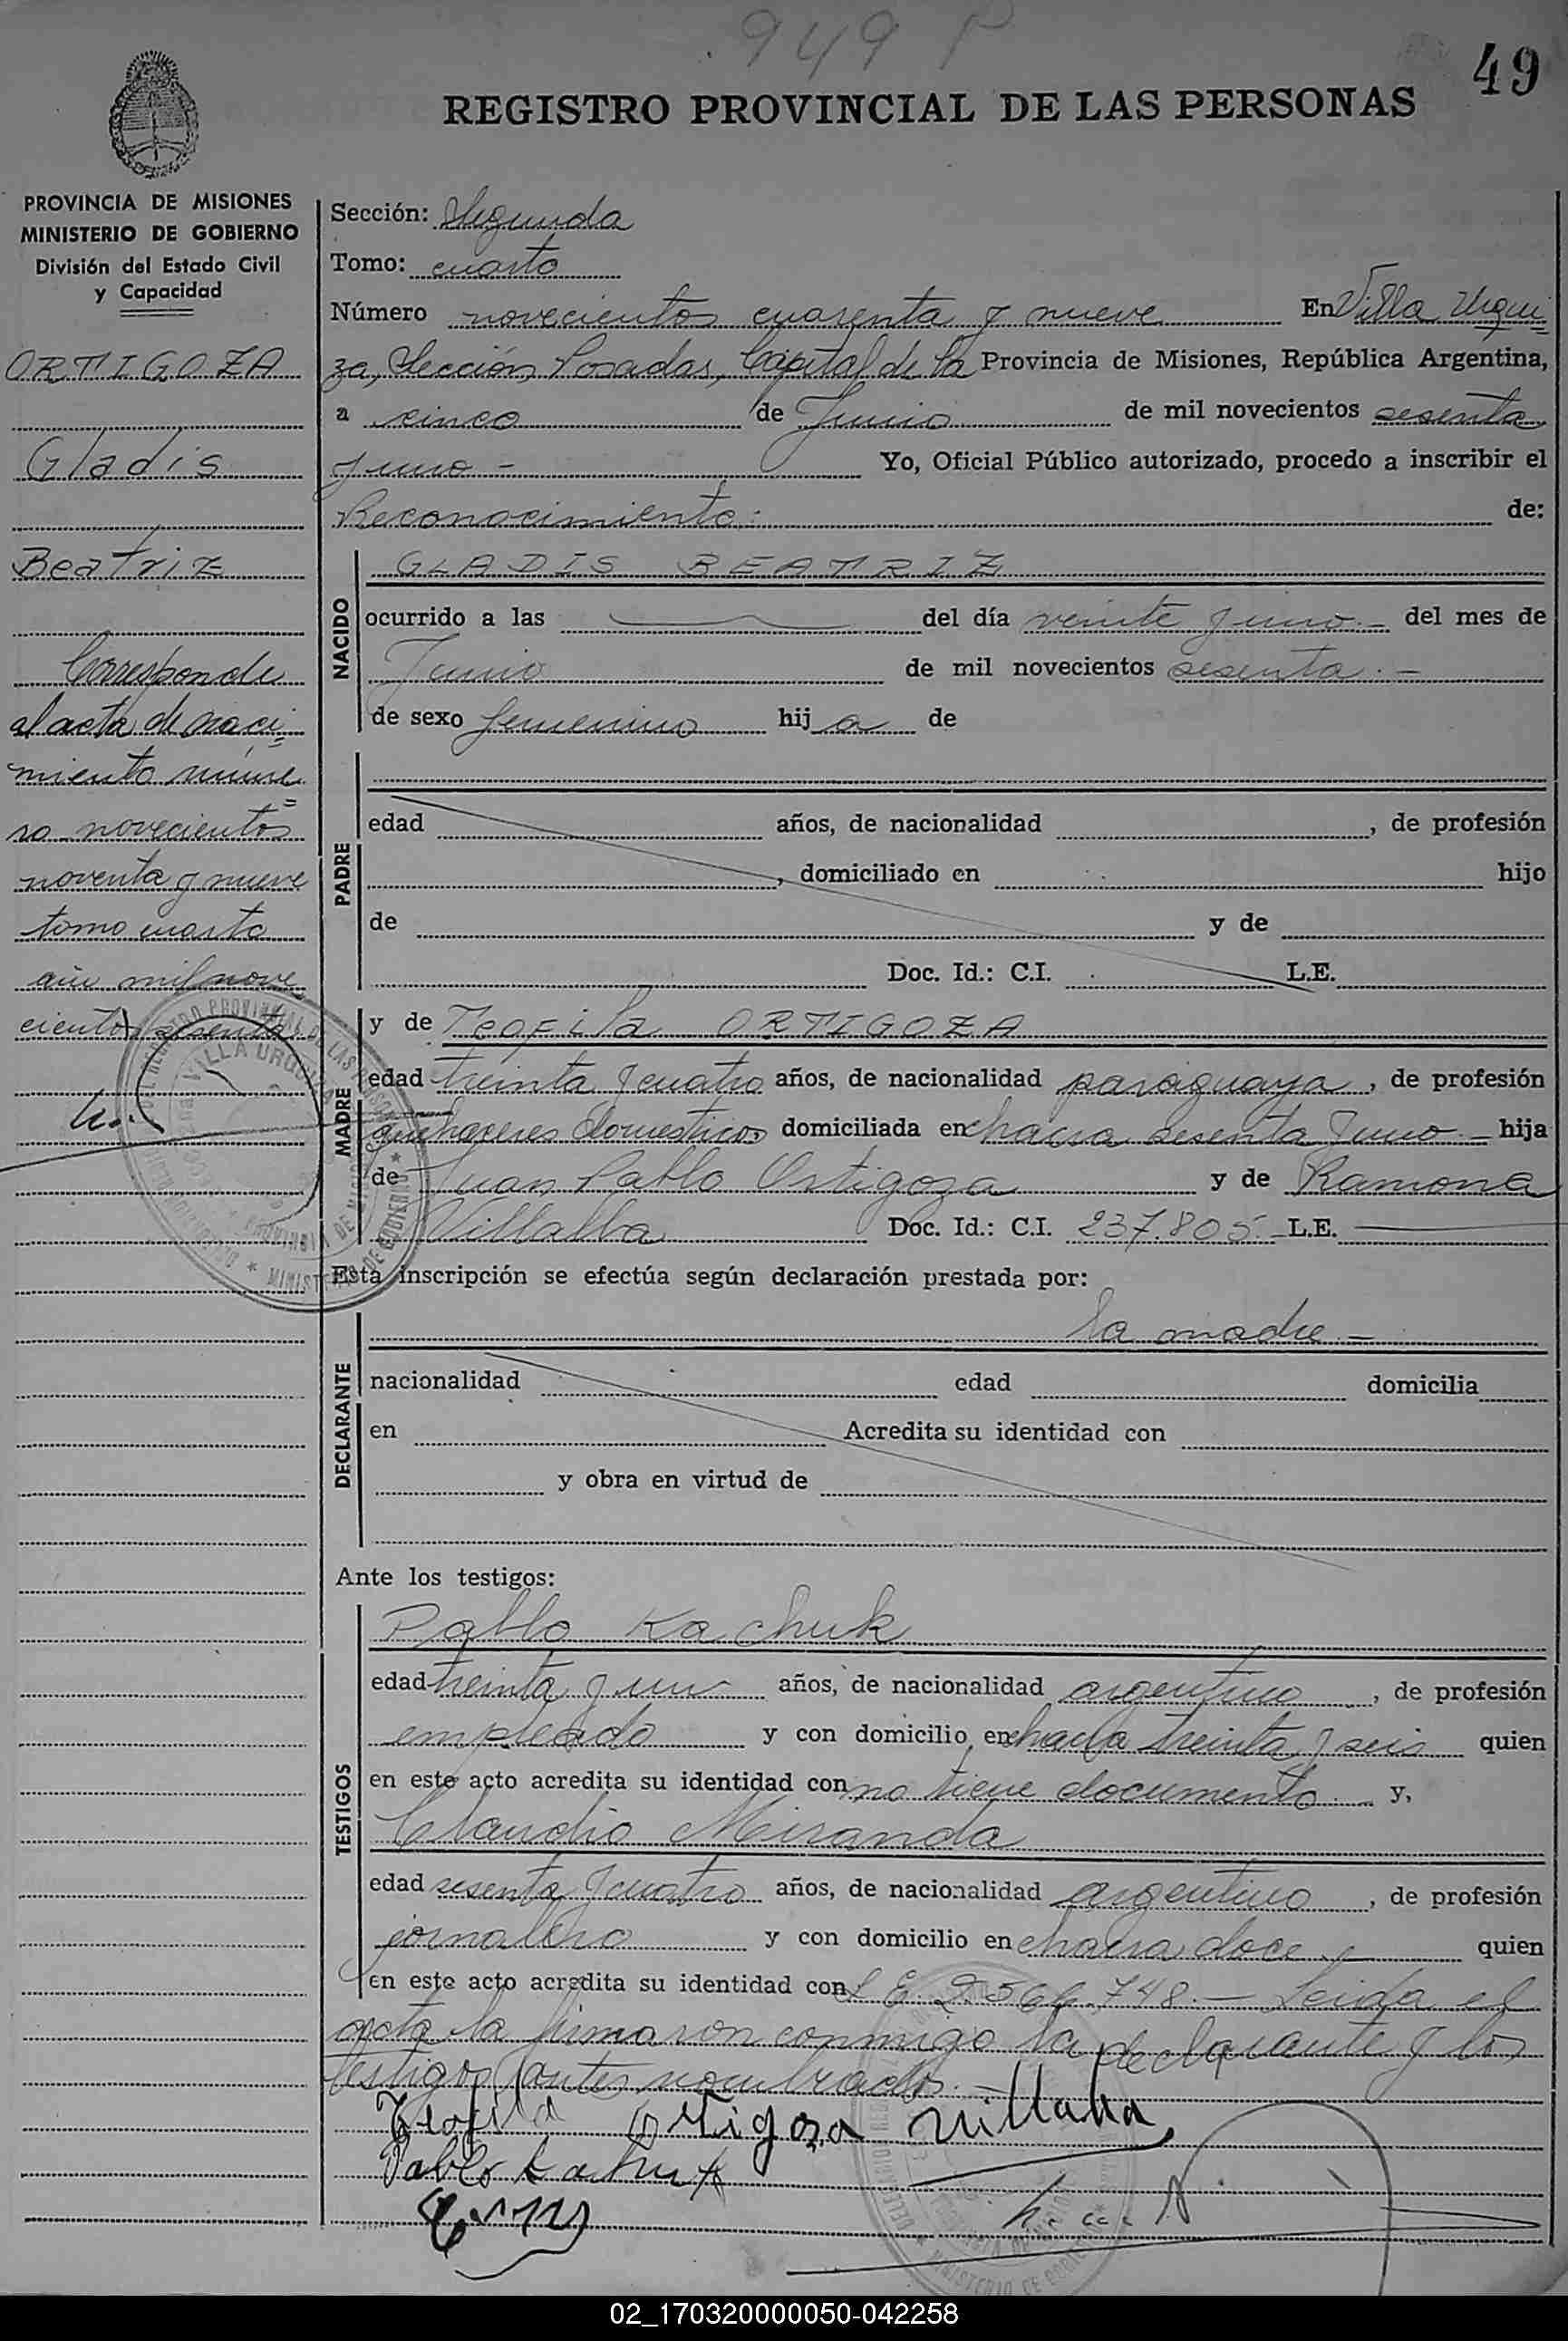 949 P
49
REGISTRO PROVINCIAL DE LAS PERSONAS
PROVINCIA DE MISIONES
MINISTERIO DE GOBIERNO
División del Estado Civil
y Capacidad
ORTIGOZA
Gladis
Beatriz
Corresponde
al acta de naci=
miento núme=
ro novecientos
noventa y nueve
tomo cuarto
año mil nove
cientos sesenta
Sección: Segunda
Tomo: cuarto
Número novecientos cuarenta y nueve En Villa Urqui=
za, Sección Posadas, Capital de la Provincia de Misiones, República Argentina,
a cinco de Junio de mil novecientos sesenta
y uno - Yo, Oficial Público autorizado, procedo a inscribir el
Reconocimiento: de:
NACIDO
GLADIS BEATRIZ
ocurrido a las del día veinte y uno.- del mes de
Junio de mil novecientos sesenta.-
de sexo femenino hija de
PADRE
edad años, de nacionalidad , de profesión
, domiciliado en hijo
de y de
Doc. Id.: C.I. L.E.
MADRE
y de Teofila ORTIGOZA
edad treinta y cuatro años, de nacionalidad paraguaya, de profesión
quehaceres domesticos domiciliada en chacra sesenta y uno.- hija
de Juan Pablo Ortigoza y de Ramona
Villalba Doc. Id.: C.I. 237.805.- L.E.
Esta inscripción se efectúa según declaración prestada por:
DECLARANTE
la madre.-
nacionalidad edad domicilia
en Acredita su identidad con
y obra en virtud de
Ante los testigos:
TESTIGOS
Pablo Kachuk
edad treinta y un años, de nacionalidad argentino, de profesión
empleado y con domicilio en chacra treinta y seis quien
en este acto acredita su identidad con no tiene documento y,
Claudio Miranda
edad sesenta y cuatro años, de nacionalidad argentino, de profesión
jornalero y con domicilio en chacra doce.- quien
en este acto acredita su identidad con L E. 2.566.748.- Leida el
acta la firmaron conmigo la declarante y los
testigos antes nombrados.-
Teofila Ortigoza Villalba
Pablo Kachuk
02_170320000050-042258